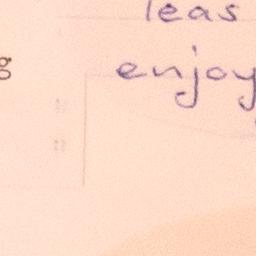 leas
enjoy
g